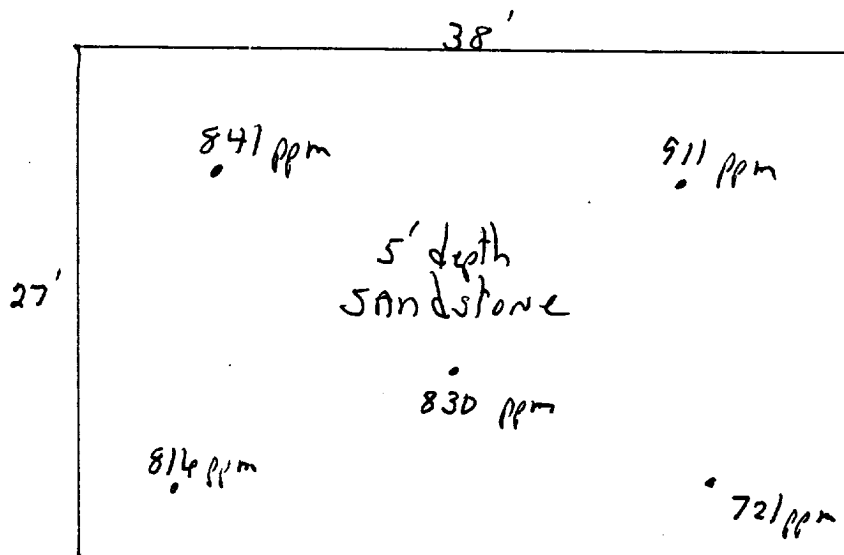 38'
841 ppm
ppm
5' depth
SANdstone
27'
830 ppm
816 ppm
721 ppm